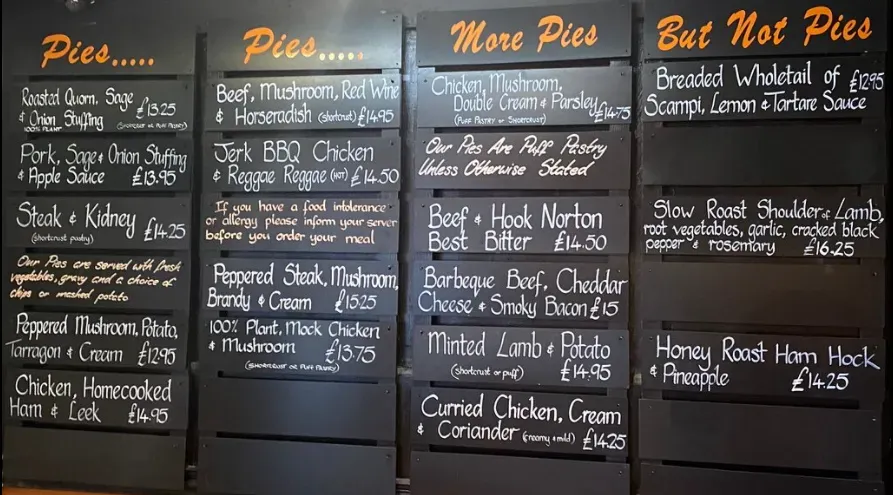 Pies.....
Roasted Quorn, Sage
& Onion Stuffing £13.25
100% PLANT (SHORTCRUST OR PUFF PASTRY)
Pork, Sage & Onion Stuffing
& Apple Sauce £13.95
Steak & Kidney
(shortcrust pastry) £14.25
Our Pies are served with fresh
vegetables, gravy and a choice of
chips or mashed potato
Peppered Mushroom, Potato,
Tarragon & Cream £12.95
Chicken, Homecooked
Ham & Leek £14.95
Pies.....
Beef, Mushroom, Red Wine
& Horseradish (shortcrust) £14.95
Jerk BBQ Chicken
& Reggae Reggae (HOT) £14.50
If you have a food intolerance
or allergy please inform your server
before you order your meal
Peppered Steak, Mushroom,
Brandy & Cream £15.25
100% Plant, Mock Chicken
& Mushroom £13.75
(SHORTCRUST OR PUFF PASTRY)
More Pies
Chicken, Mushroom,
Double Cream & Parsley £14.75
(PUFF PASTRY OR SHORTCRUST)
Our Pies Are Puff Pastry
Unless Otherwise Stated
Beef & Hook Norton
Best Bitter £14.50
Barbeque Beef, Cheddar
Cheese & Smoky Bacon £15
Minted Lamb & Potato
(shortcrust or puff) £14.95
Curried Chicken, Cream
& Coriander (creamy & mild) £14.25
But Not Pies
Breaded Wholetail of £12.95
Scampi, Lemon & Tartare Sauce
Slow Roast Shoulder of Lamb,
root vegetables, garlic, cracked black
pepper & rosemary £16.25
Honey Roast Ham Hock
& Pineapple £14.25